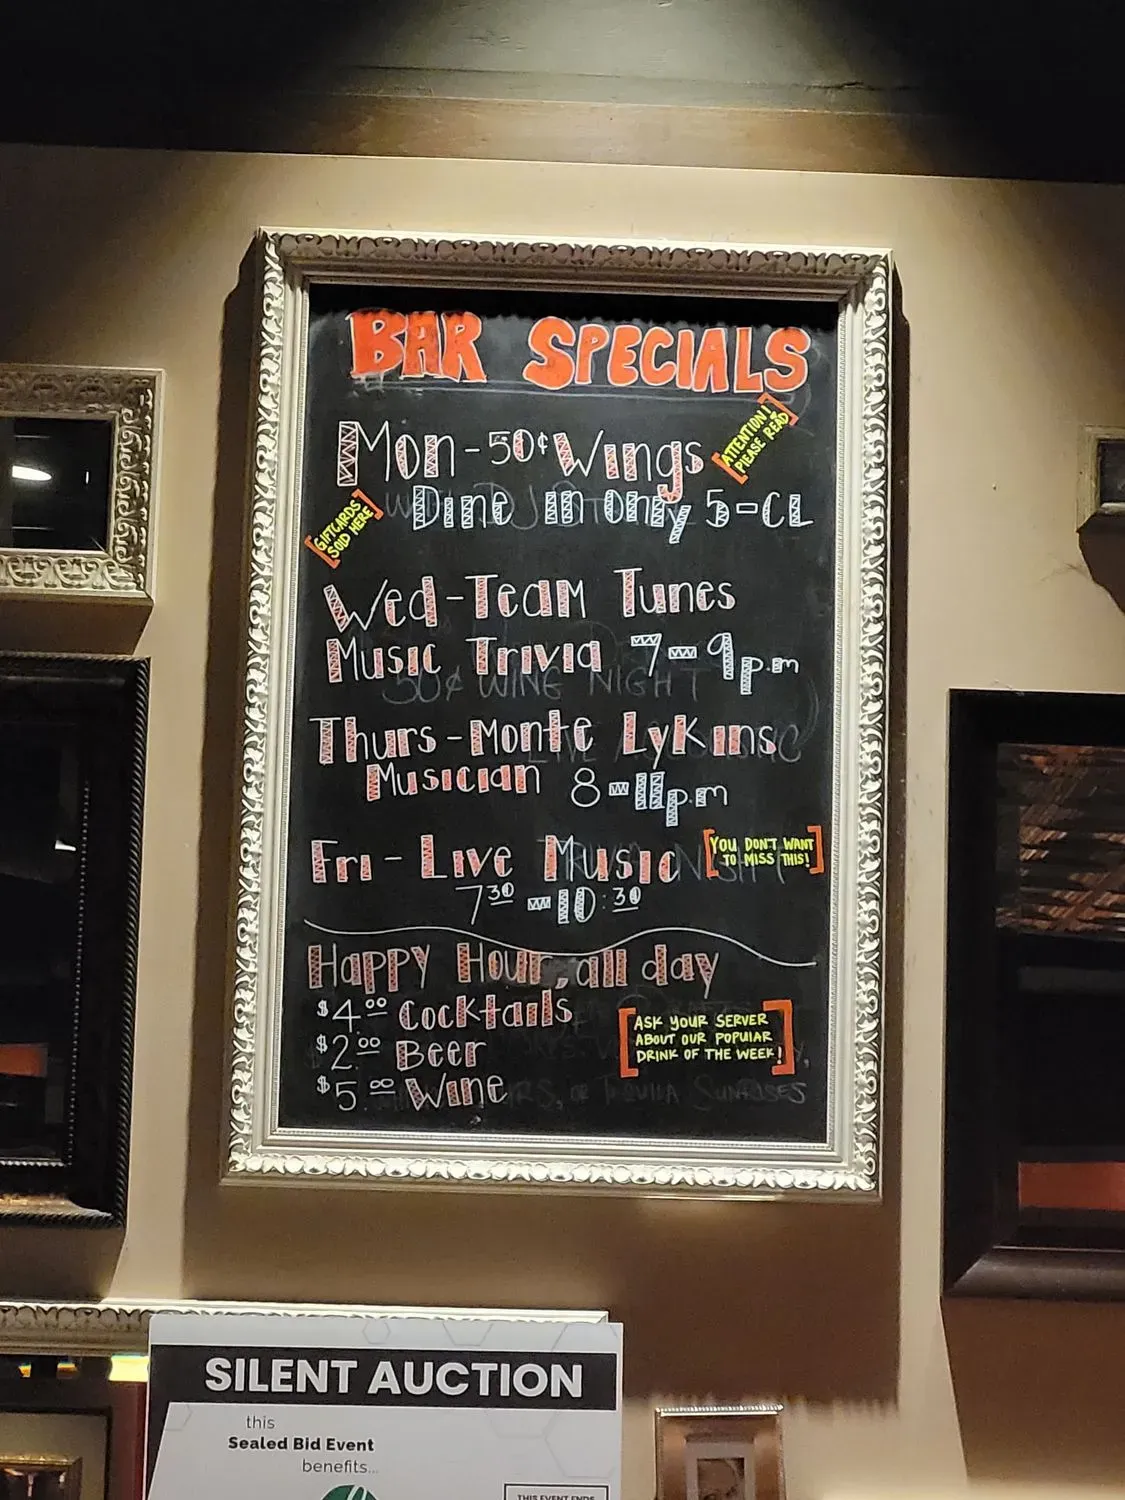 BAR SPECIALS
Mon-50¢ Wings
ATTENTION!
PLEASE READ
Dine in only 5-CL
GIFTCARDS
SOLD HERE
Wed-Team Tunes
Music Trivia 7-9p.m
50¢ WINE NIGHT
Thurs-Monte Lykins
Musician 8-11p.m
Fri-Live Music
YOU DON'T WANT
TO MISS THIS!
7:30-10:30
Happy Hour, all day
$4.00 Cocktails
$2.00 Beer
$5.00 Wine
ASK YOUR SERVER
ABOUT OUR POPULAR
DRINK OF THE WEEK!
TEQUILA SUNRISES
SILENT AUCTION
this
Sealed Bid Event
benefits...
THIS EVENT ENDS